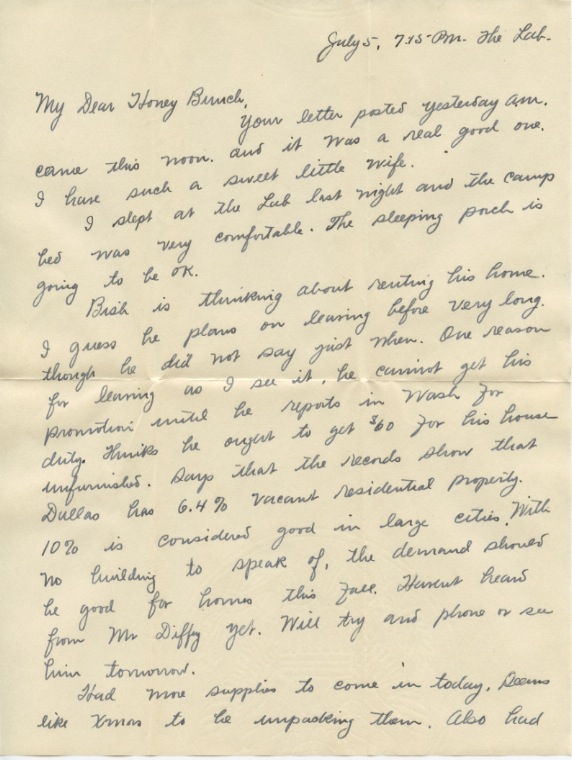 July 5, 7:15 PM. The Lab.
My Dear Honey Bunch,
Your letter posted yesterday am.
came this noon. and it was a real good one.
I have such a sweet little wife.
I slept at the Lab last night and the camp
bed was very comfortable. The sleeping porch is
going to be OK.
Bish is thinking about renting his home.
I guess he plans on leaving before very long.
though he did not say just when. One reason
for leaving as I see it, he cannot get his
promotion until he reports in Wash for
duty. Thinks he ought to get $60 for his house
unfurnished. Says that the records show that
Dallas has 6.4% vacant residential property.
10% is considered good in large cities. With
no building to speak of, the demand should
be good for homes this fall. Havent heard
from Mr Diffy yet. Will try and phone or see
him tomorrow.
Had more supplies to come in today. Seems
like Xmas to be unpacking them. Also had